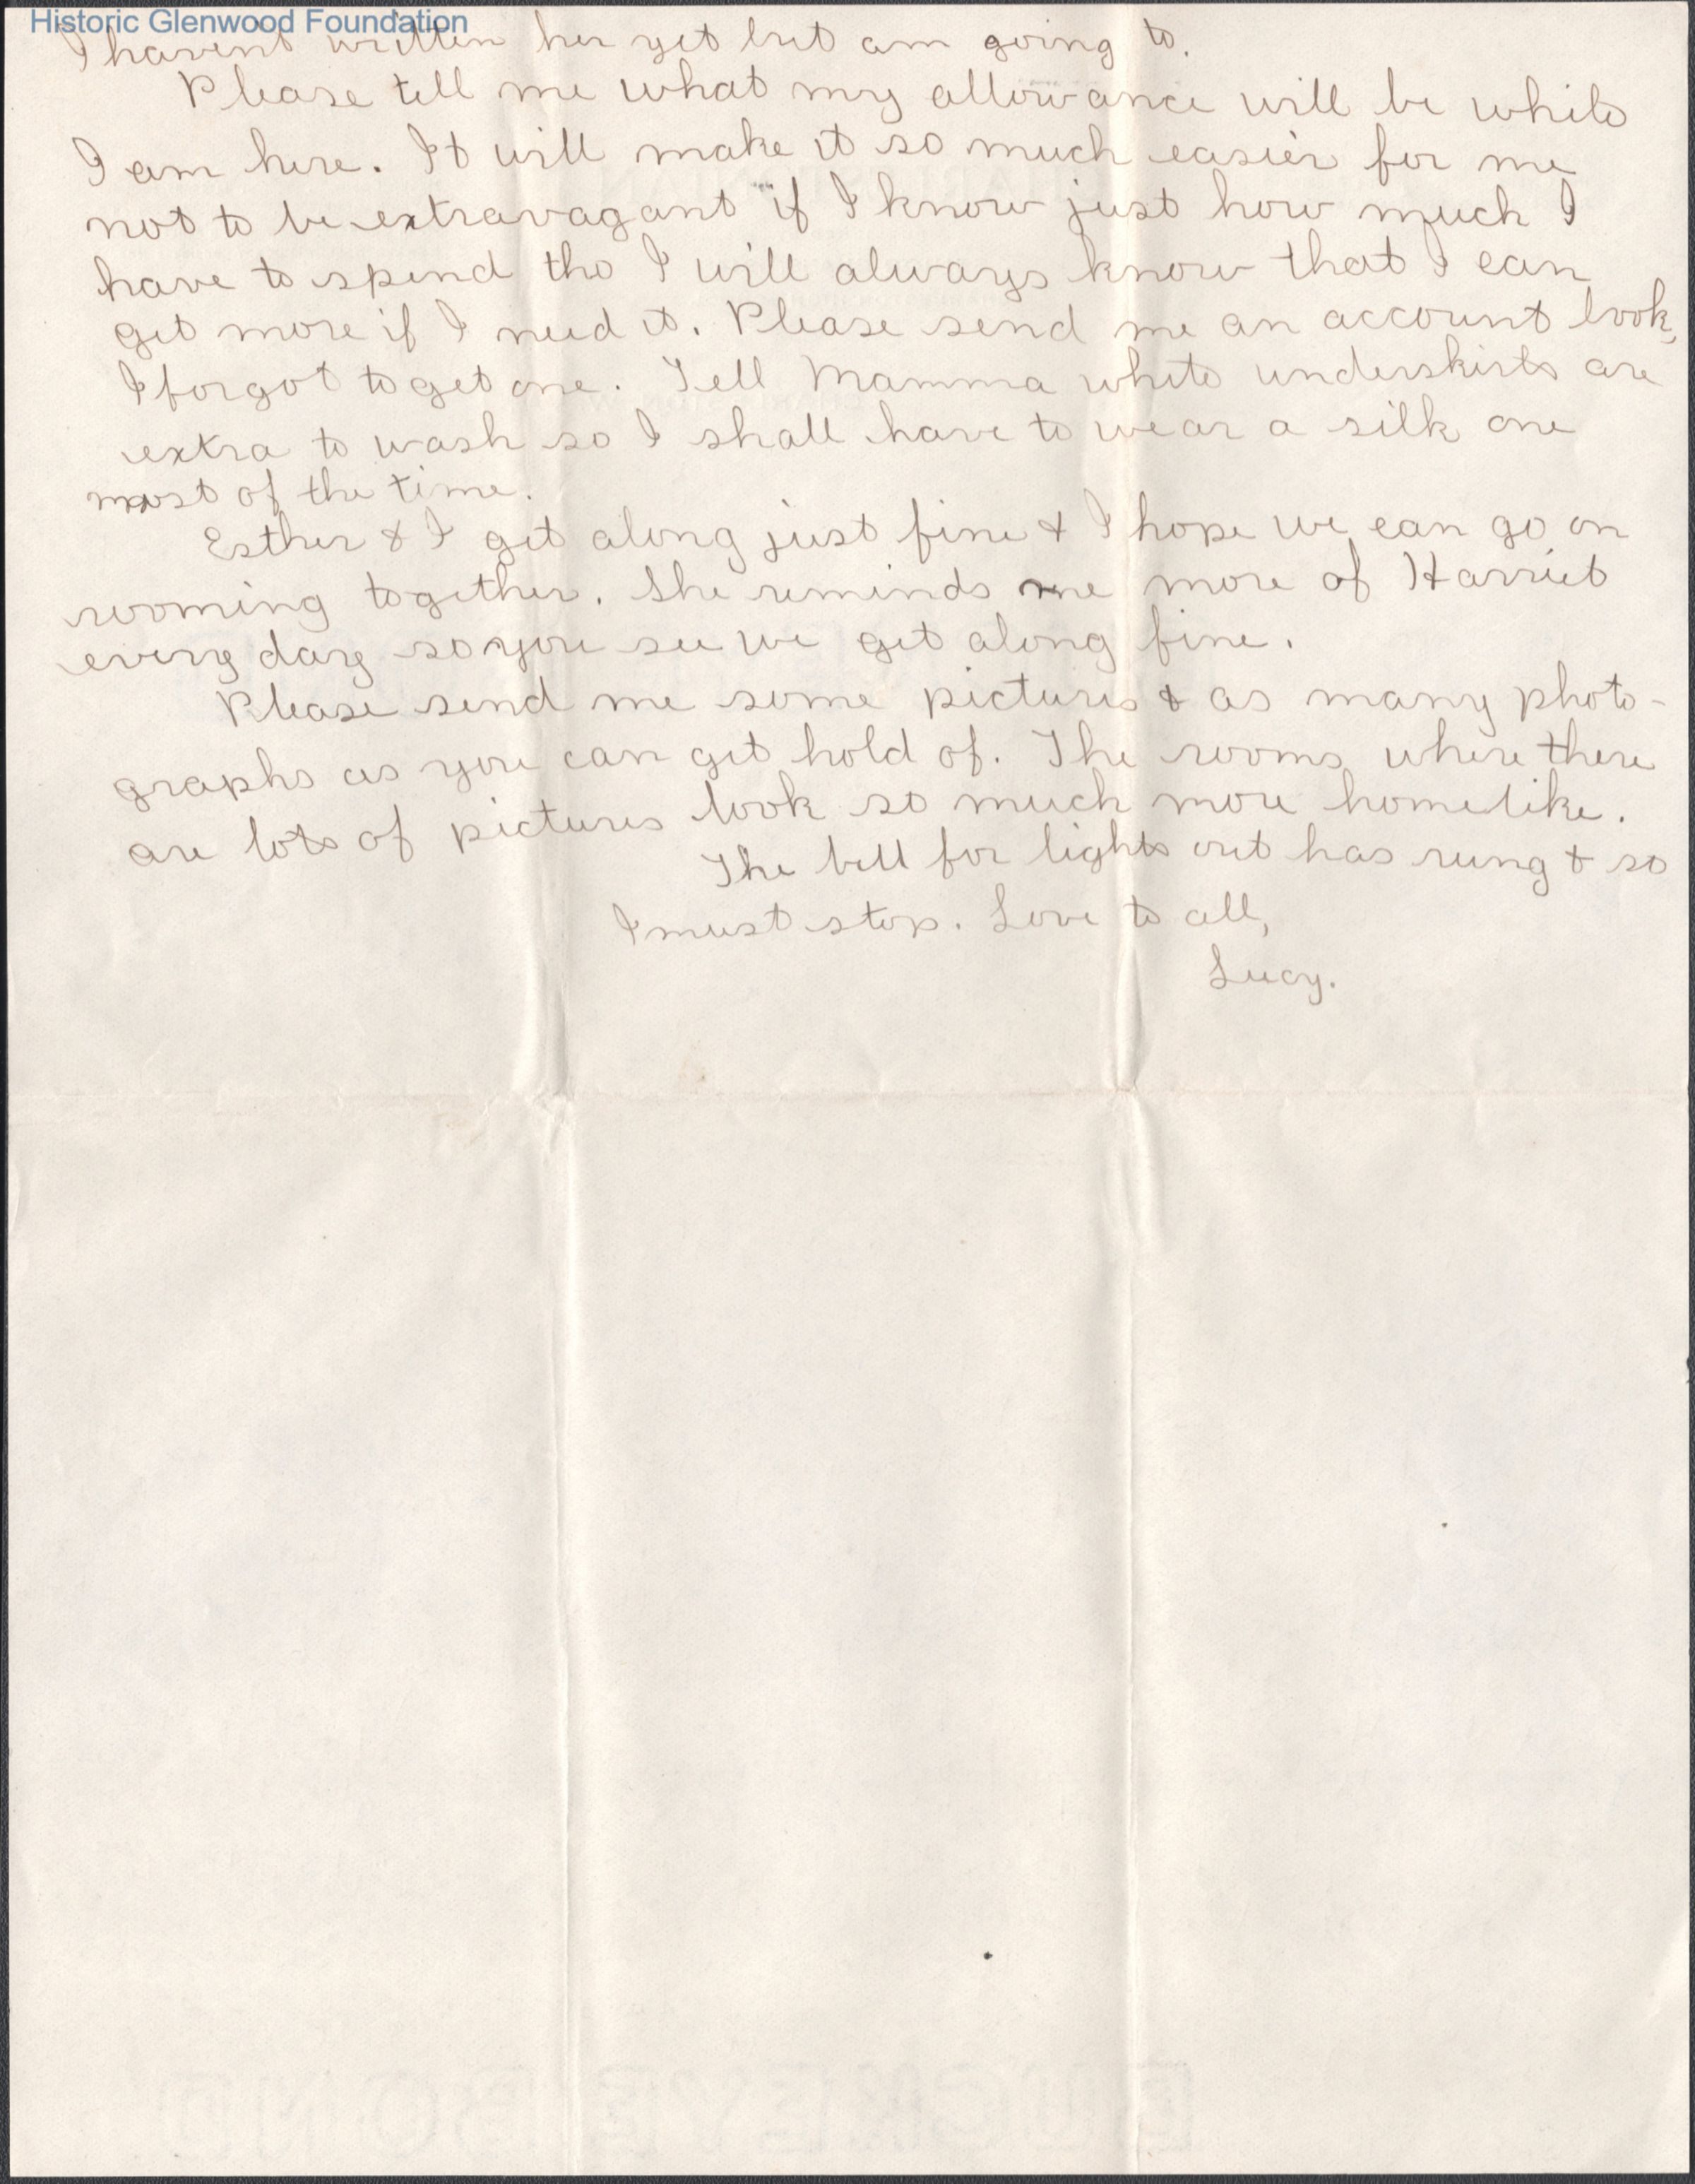 Historic Glenwood Foundation
I havent written her yet but am going to.
Please tell me what my allowance will be while
I am here. It will make it so much easier for me
not to be extravagant if I know just how much I
have to spend tho I will always know that I can
get more if I need it. Please send me an account book,
I forgot to get one. Tell Mamma white underskirts are
extra to wash so I shall have to wear a silk one
most of the time.
Esther & I get along just fine & I hope we can go on
rooming together. She reminds me more of Harriet
every day so you see we get along fine.
Please send me some pictures & as many photo-
graphs as you can get hold of. The rooms where there
are lots of pictures look so much more homelike.
The bell for lights out has rung & so
I must stop. Love to all,
Lucy.